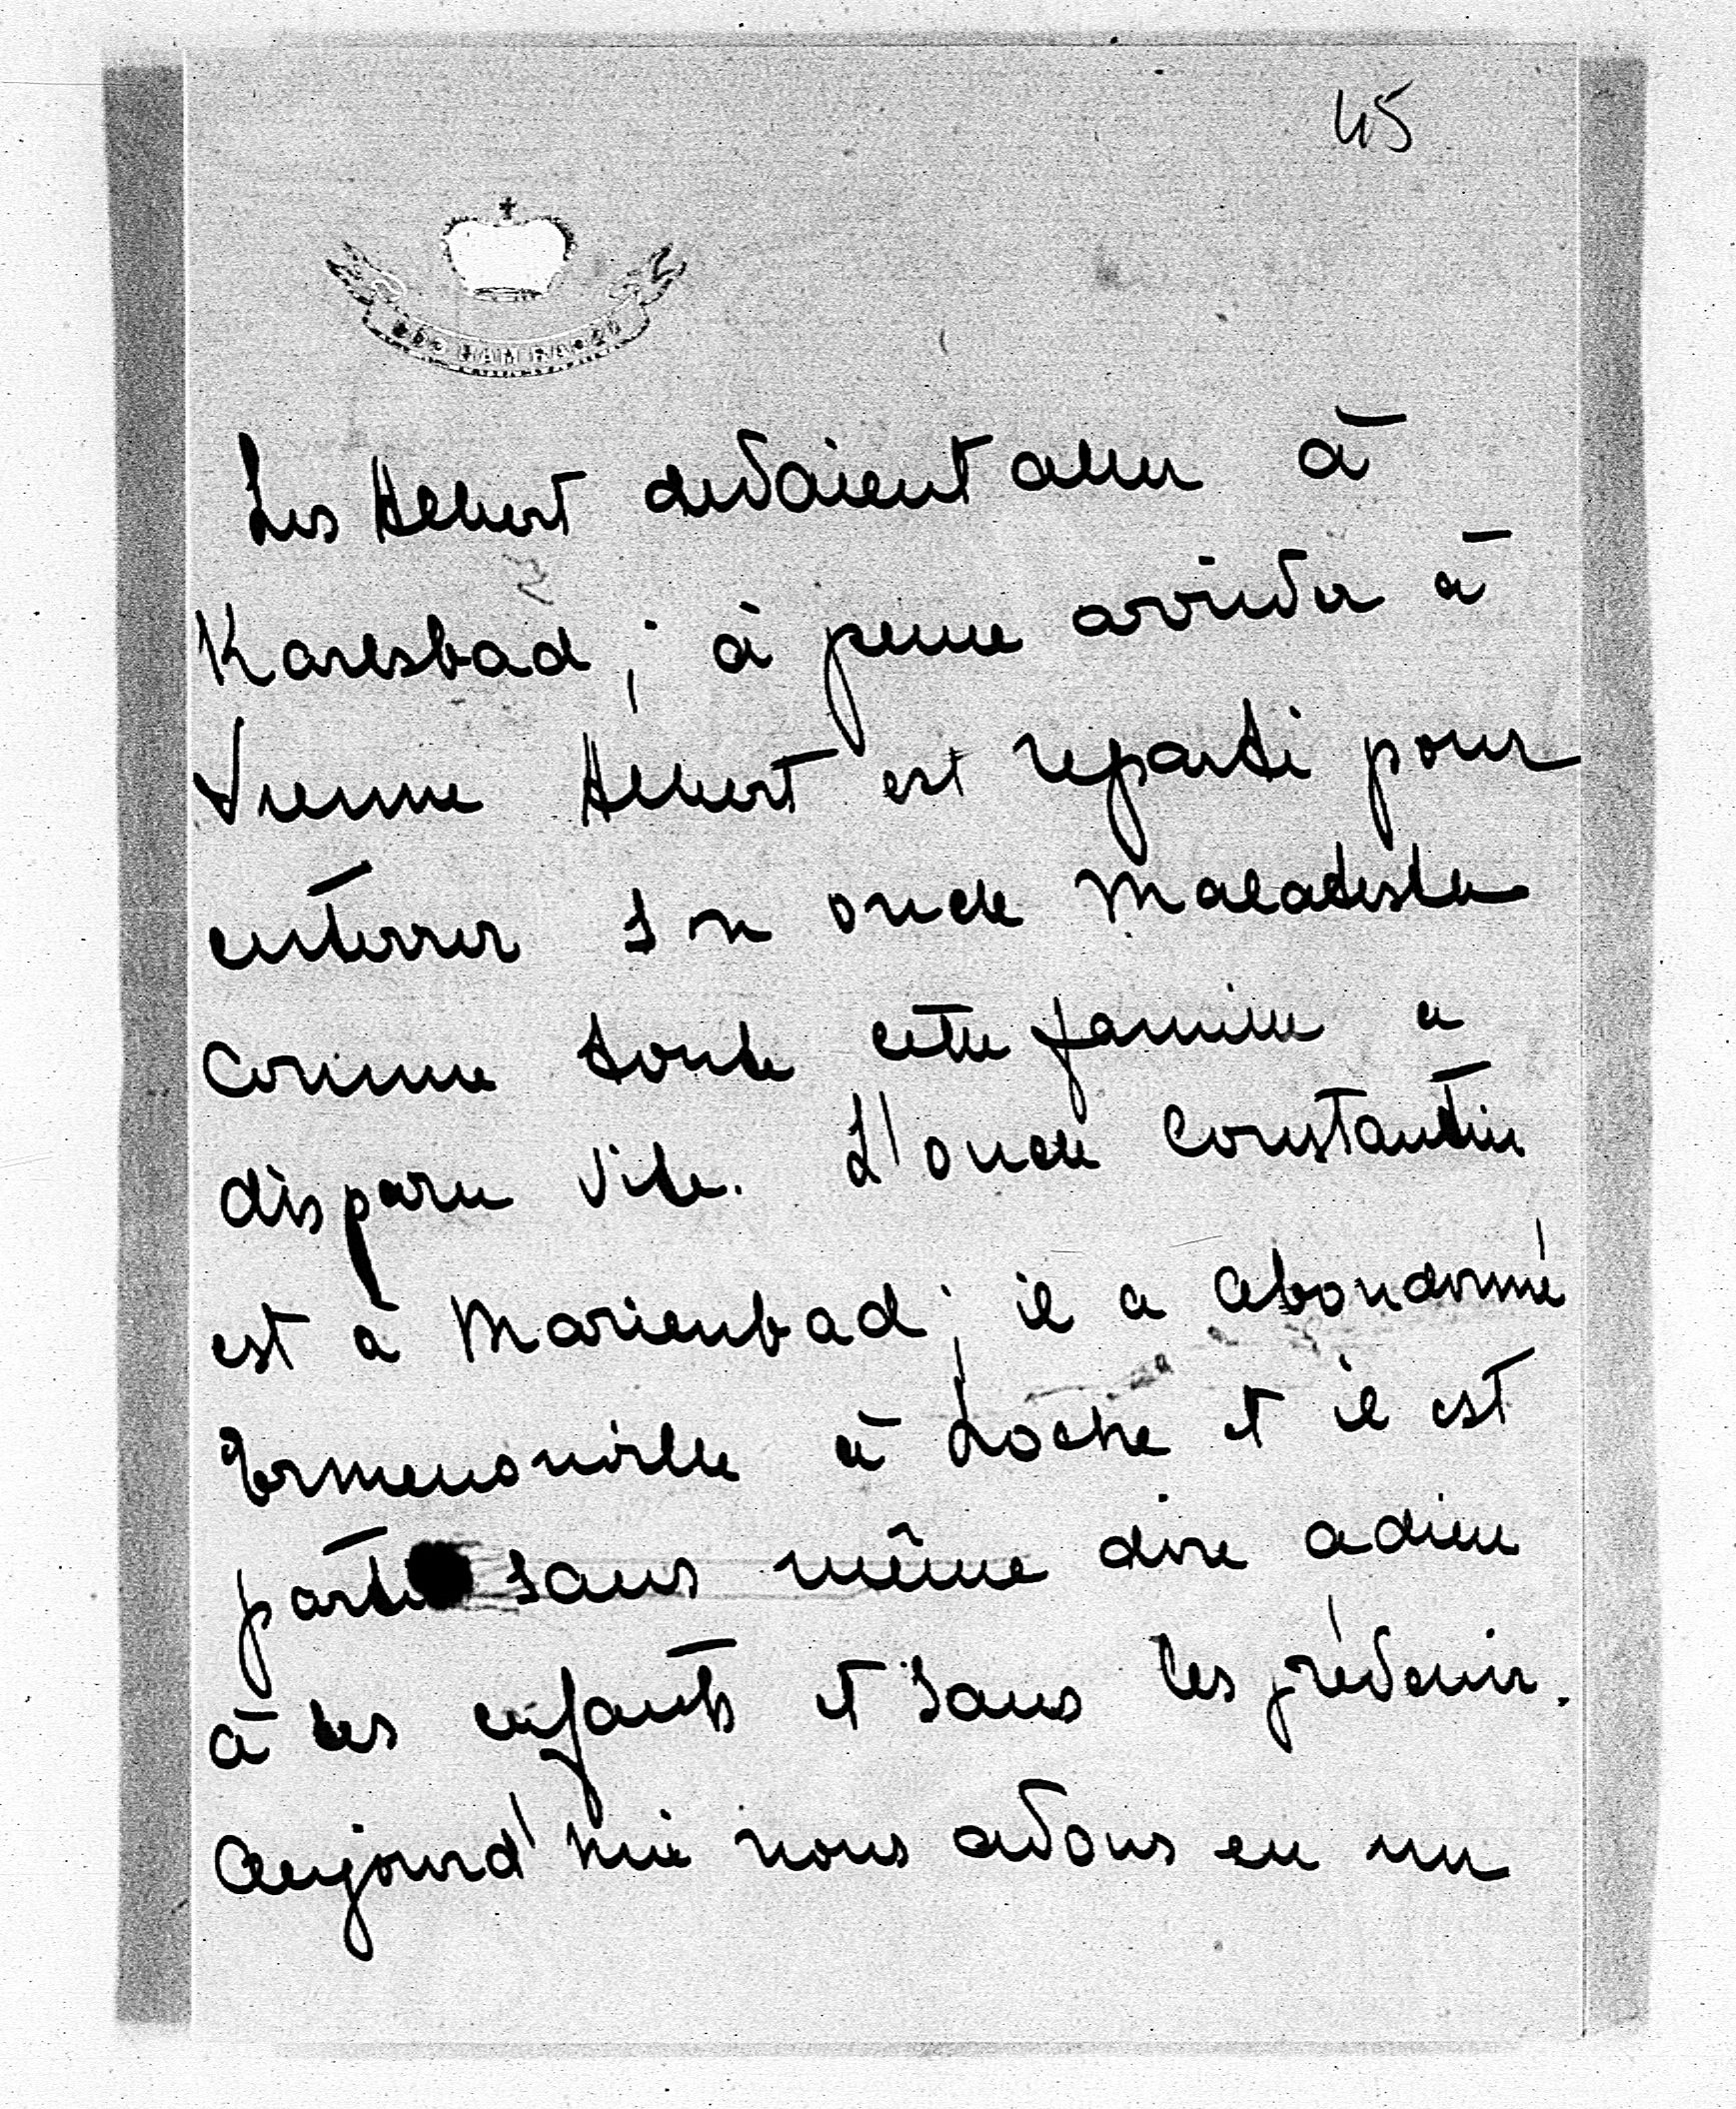 45
Les Albert devaient aller à
Karlsbad; à peine arrivés à
Vienne Albert est reparti pour
enterrer son oncle Malatesta
Comme toute cette famille a
disparu vite. L'oncle Constantin
est à Marienbad; il a abandonné
Ermenonville à Loche et il est
parti sans même dire adieu
à ses enfants et sans les prévenir.
Aujourd'hui nous avons eu un